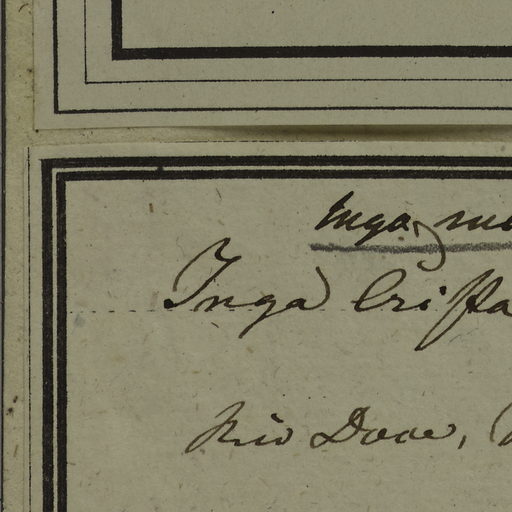 Inga
Inga Crista
Rio Doce,